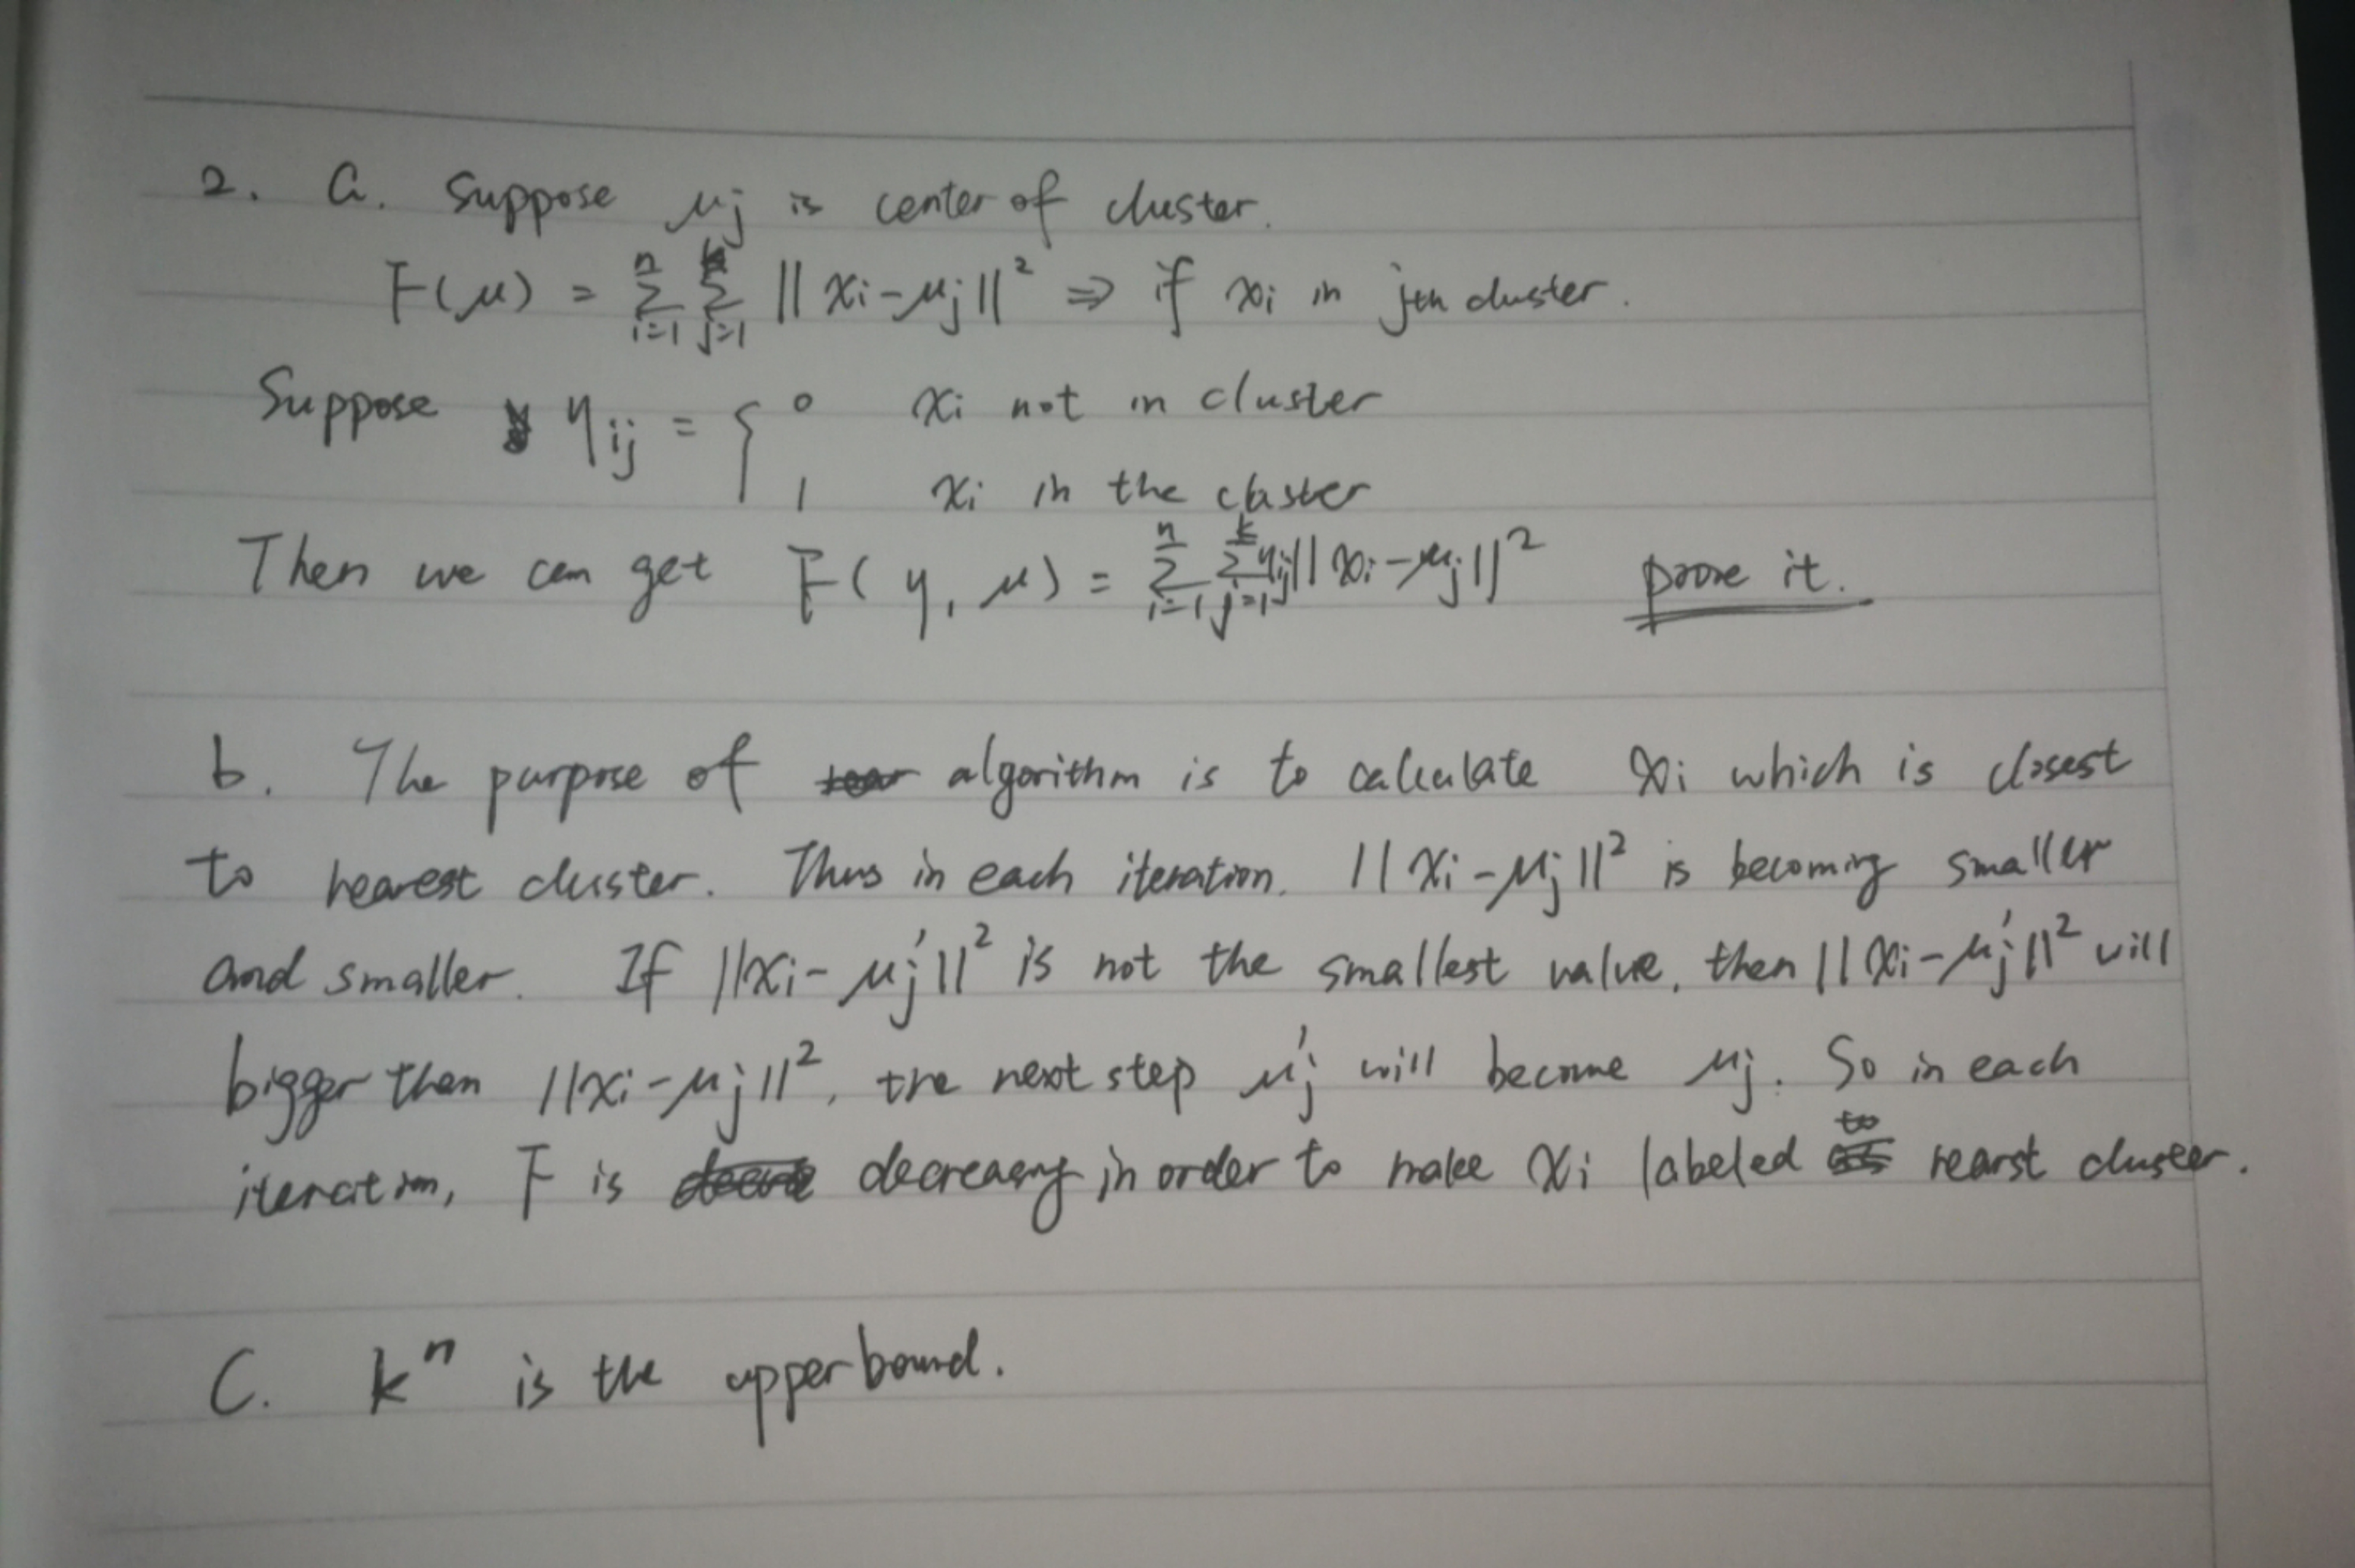 2. a. Suppose μj is center of cluster.
F(μ) = Σ_{i=1}^{n} Σ_{j=1}^{k} ||xi - μj||² ⇒ if xi in jth cluster.
Suppose ηij = { 0 xi not in cluster
1 xi in the cluster
Then we can get F(y, μ) = Σ_{i=1}^{n} Σ_{j=1}^{k} ηij||xi - μj||² prove it.
b. The purpose of algorithm is to calculate xi which is closest
to nearest cluster. Thus in each iteration. ||xi - μj||² is becoming smaller
and smaller. If ||xi - μj'||² is not the smallest value, then ||xi - μj'||² will
bigger then ||xi - μj||², the next step μj' will become μj. So in each
iteration, F is decreasng in order to make xi labeled to nearst cluster.
C. kⁿ is the upper bound.